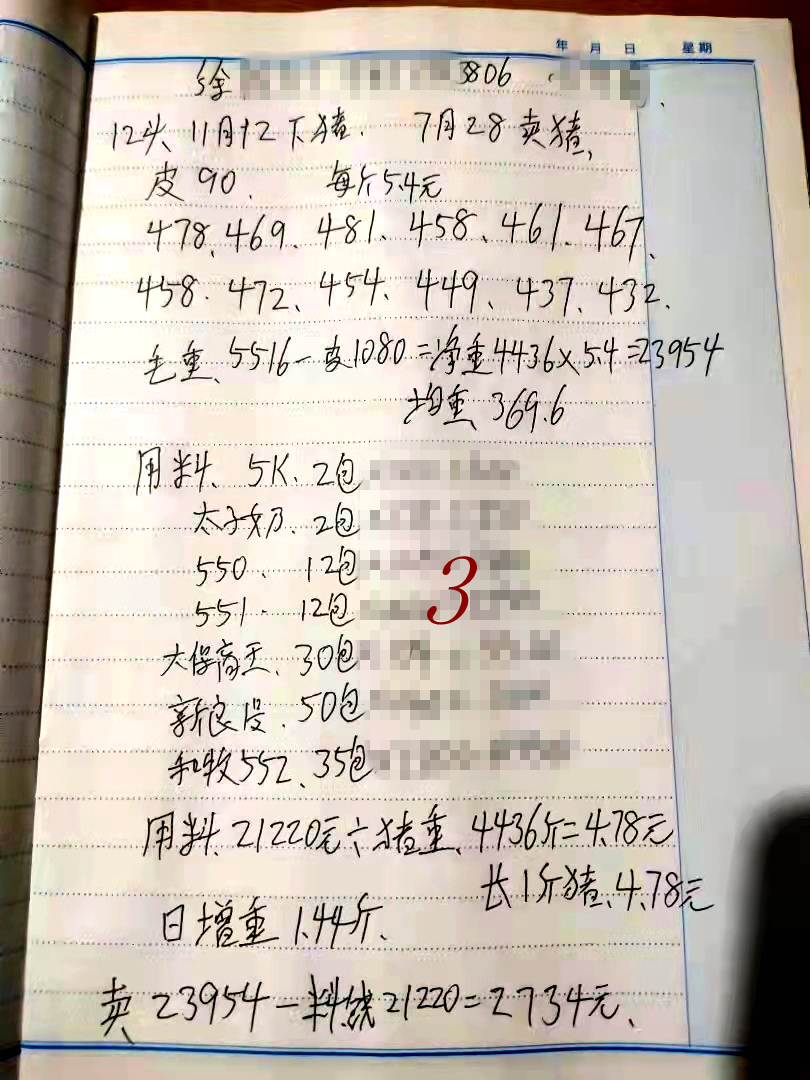 年 月 日 星期
徐 3806
12头 11月12下猪. 7月28卖猪,
皮90. 每斤5.4元
478、469、481、458、461、467、
458、472、454、449、437、432.
毛重、5516-皮1080=净重4436×5.4=23954
均重、369.6
用料、5K、2包
太子奶、2包
550、12包
551、12包
3
大保育王、30包
新浪漫、50包
和牧552、35包
用料、21220元÷猪重、4436斤=4.78元
长1斤猪、4.78元
日增重1.44斤、
卖23954-料钱21220=2734元、